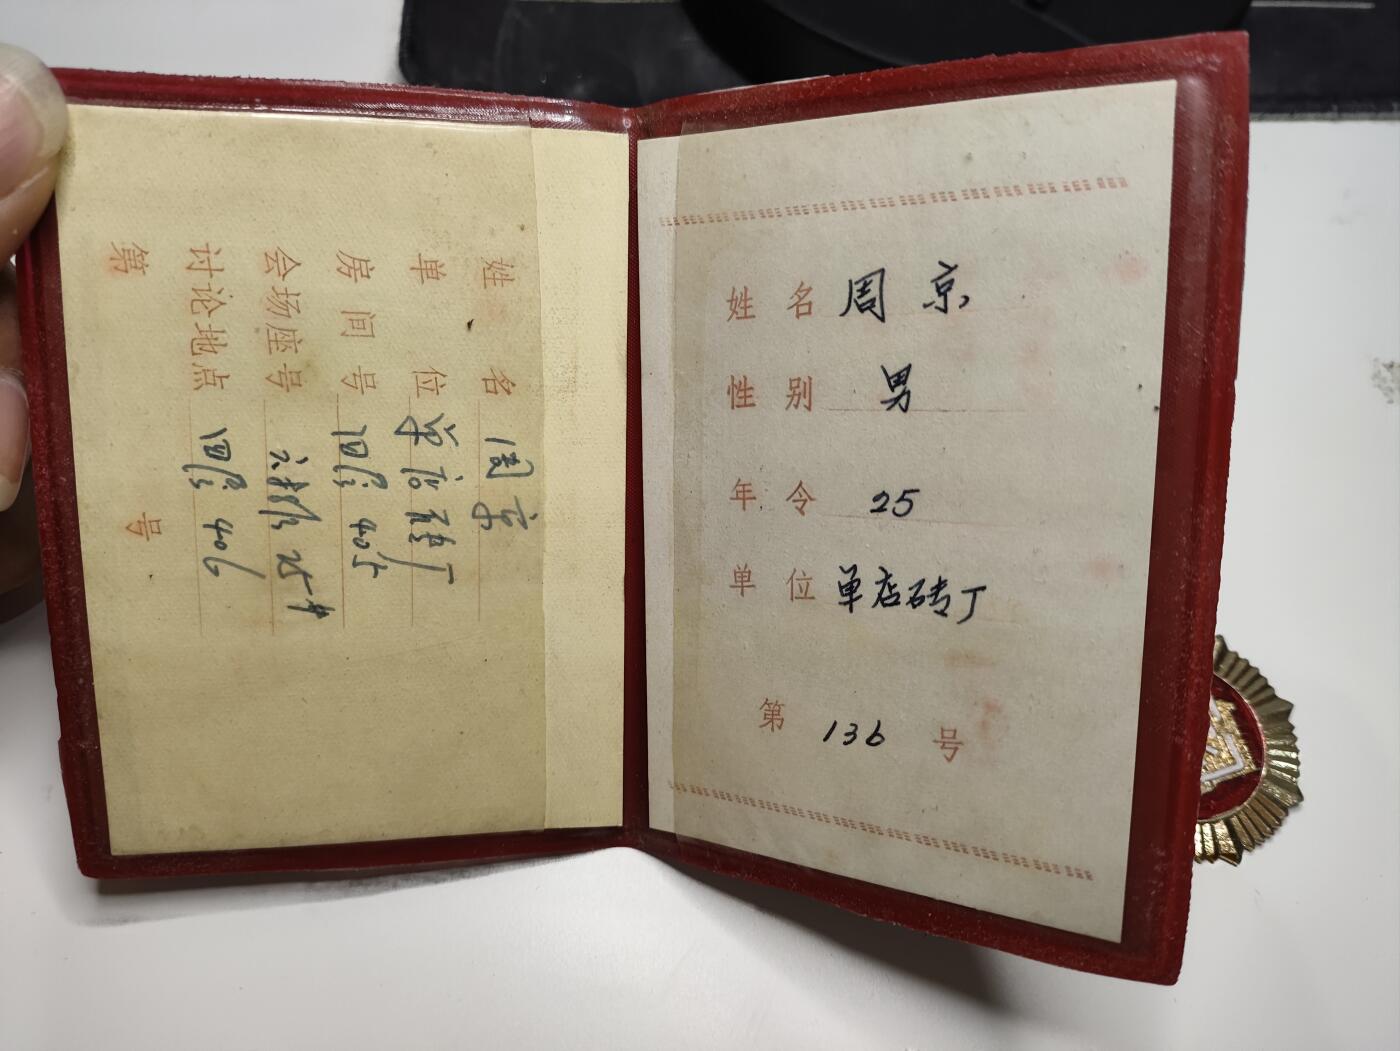 姓名 周京
单位 单店砖丁
房间号 四층 405
会场座号 25号
讨论地点 四층 406
第 号
姓名 周京
性别 男
年令 25
单位 单店砖丁
第 136 号